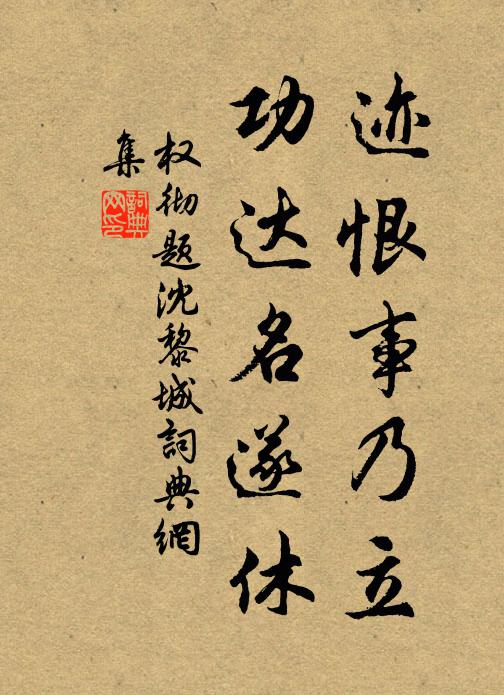 迹恨事乃立
功达名遂休
权彻题沈黎城词典網
集
詞典網印